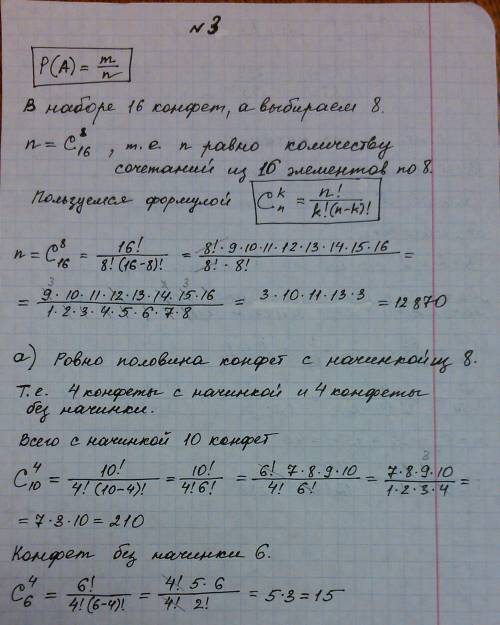 №3
P(A) = m/n
В наборе 16 конфет, а выбираем 8.
n = C₁₆⁸, т.е. n равно количеству
сочетаний из 16 элементов по 8.
Пользуемся формулой Cₙᵏ = n!/(k!(n-k)!)
n = C₁₆⁸ = 16!/(8!(16-8)!) = (8!·9·10·11·12·13·14·15·16)/(8!·8!) =
= (9·10·11·12·13·14·15·16)/(1·2·3·4·5·6·7·8) = 3·10·11·13·3 = 12870
а) Ровно половина конфет с начинкой из 8.
Т.е. 4 конфеты с начинкой и 4 конфеты
без начинки.
Всего с начинкой 10 конфет
C₁₀⁴ = 10!/(4!(10-4)!) = 10!/(4!6!) = (6! 7·8·9·10)/(4! 6!) = (7·8·9·10)/(1·2·3·4) =
= 7·3·10 = 210
Конфет без начинки 6.
C₆⁴ = 6!/(4!(6-4)!) = (4! 5·6)/(4! 2!) = 5·3 = 15